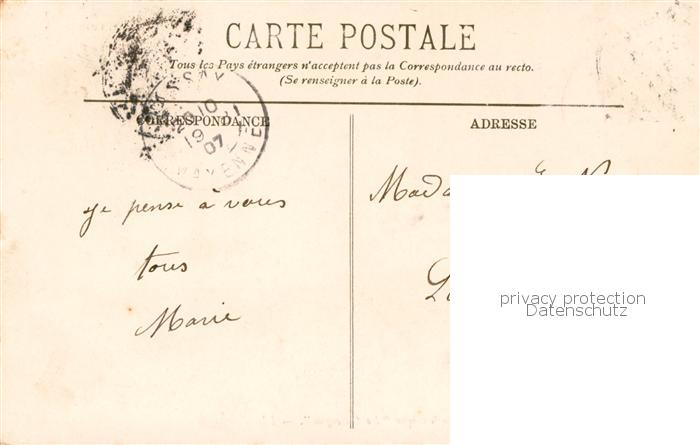 CARTE POSTALE
Tous les Pays étrangers n'acceptent pas la Correspondance au recto.
(Se renseigner à la Poste).
CORRESPONDANCE
ADRESSE
10
07
MAYENNE
Je pense à vous
tous
Marie
privacy protection
Datenschutz